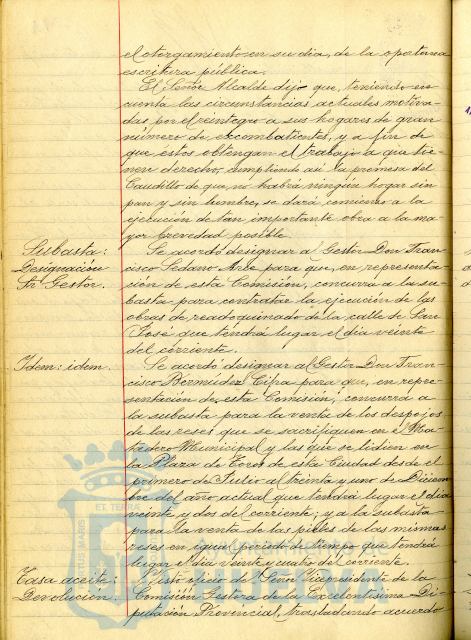 el otorgamiento en su dia, de la oportuna
escritura pública.
El Señor Alcalde dijo que, teniendo en
cuenta las circunstancias actuales motiva-
das por el reintegro a sus hogares de gran
número de excombatientes, y a fin de
que estos obtengan el trabajo a que tie-
nen derecho, cumpliendo asi la promesa del
Caudillo de que no habrá ningún hogar sin
pan y sin lumbre, se dará comienzo a la
ejecución de tan importante obra a la ma-
yor brevedad posible.
Subasta:
Designación
Sr. Gestor.
Se acordó designar al Gestor Don Fran-
cisco Sedano Arce para que, en representa-
ción de esta Comisión, concurra a la su-
basta para contratar la ejecución de las
obras de readoquinado de la calle de San
José que tendrá lugar el dia veinte
del corriente.
Idem: idem.
Se acordó designar al Gestor Don Fran-
cisco Bermúdez para que, en repre-
sentación de esta Comisión, concurra a
la subasta para la venta de los despojos
de las reses que se sacrifiquen en el Ma-
tadero Municipal y las que se lidien en
la Plaza de Toros de esta Ciudad desde el
primero de Julio al treinta y uno de Diciem-
bre del año actual que tendrá lugar el dia
veinte y dos del corriente; y a la subasta
para la venta de las pieles de las mismas
reses en igual periodo de tiempo que tendrá
lugar el dia veinte y cuatro del corriente.
Tasa aceite:
Devolución.
Visto oficio del Señor Vicepresidente de la
Comisión Gestora de la Excelentisima Di-
putación Provincial, trasladando acuerdo
ET TERRA
Ayuntamiento de